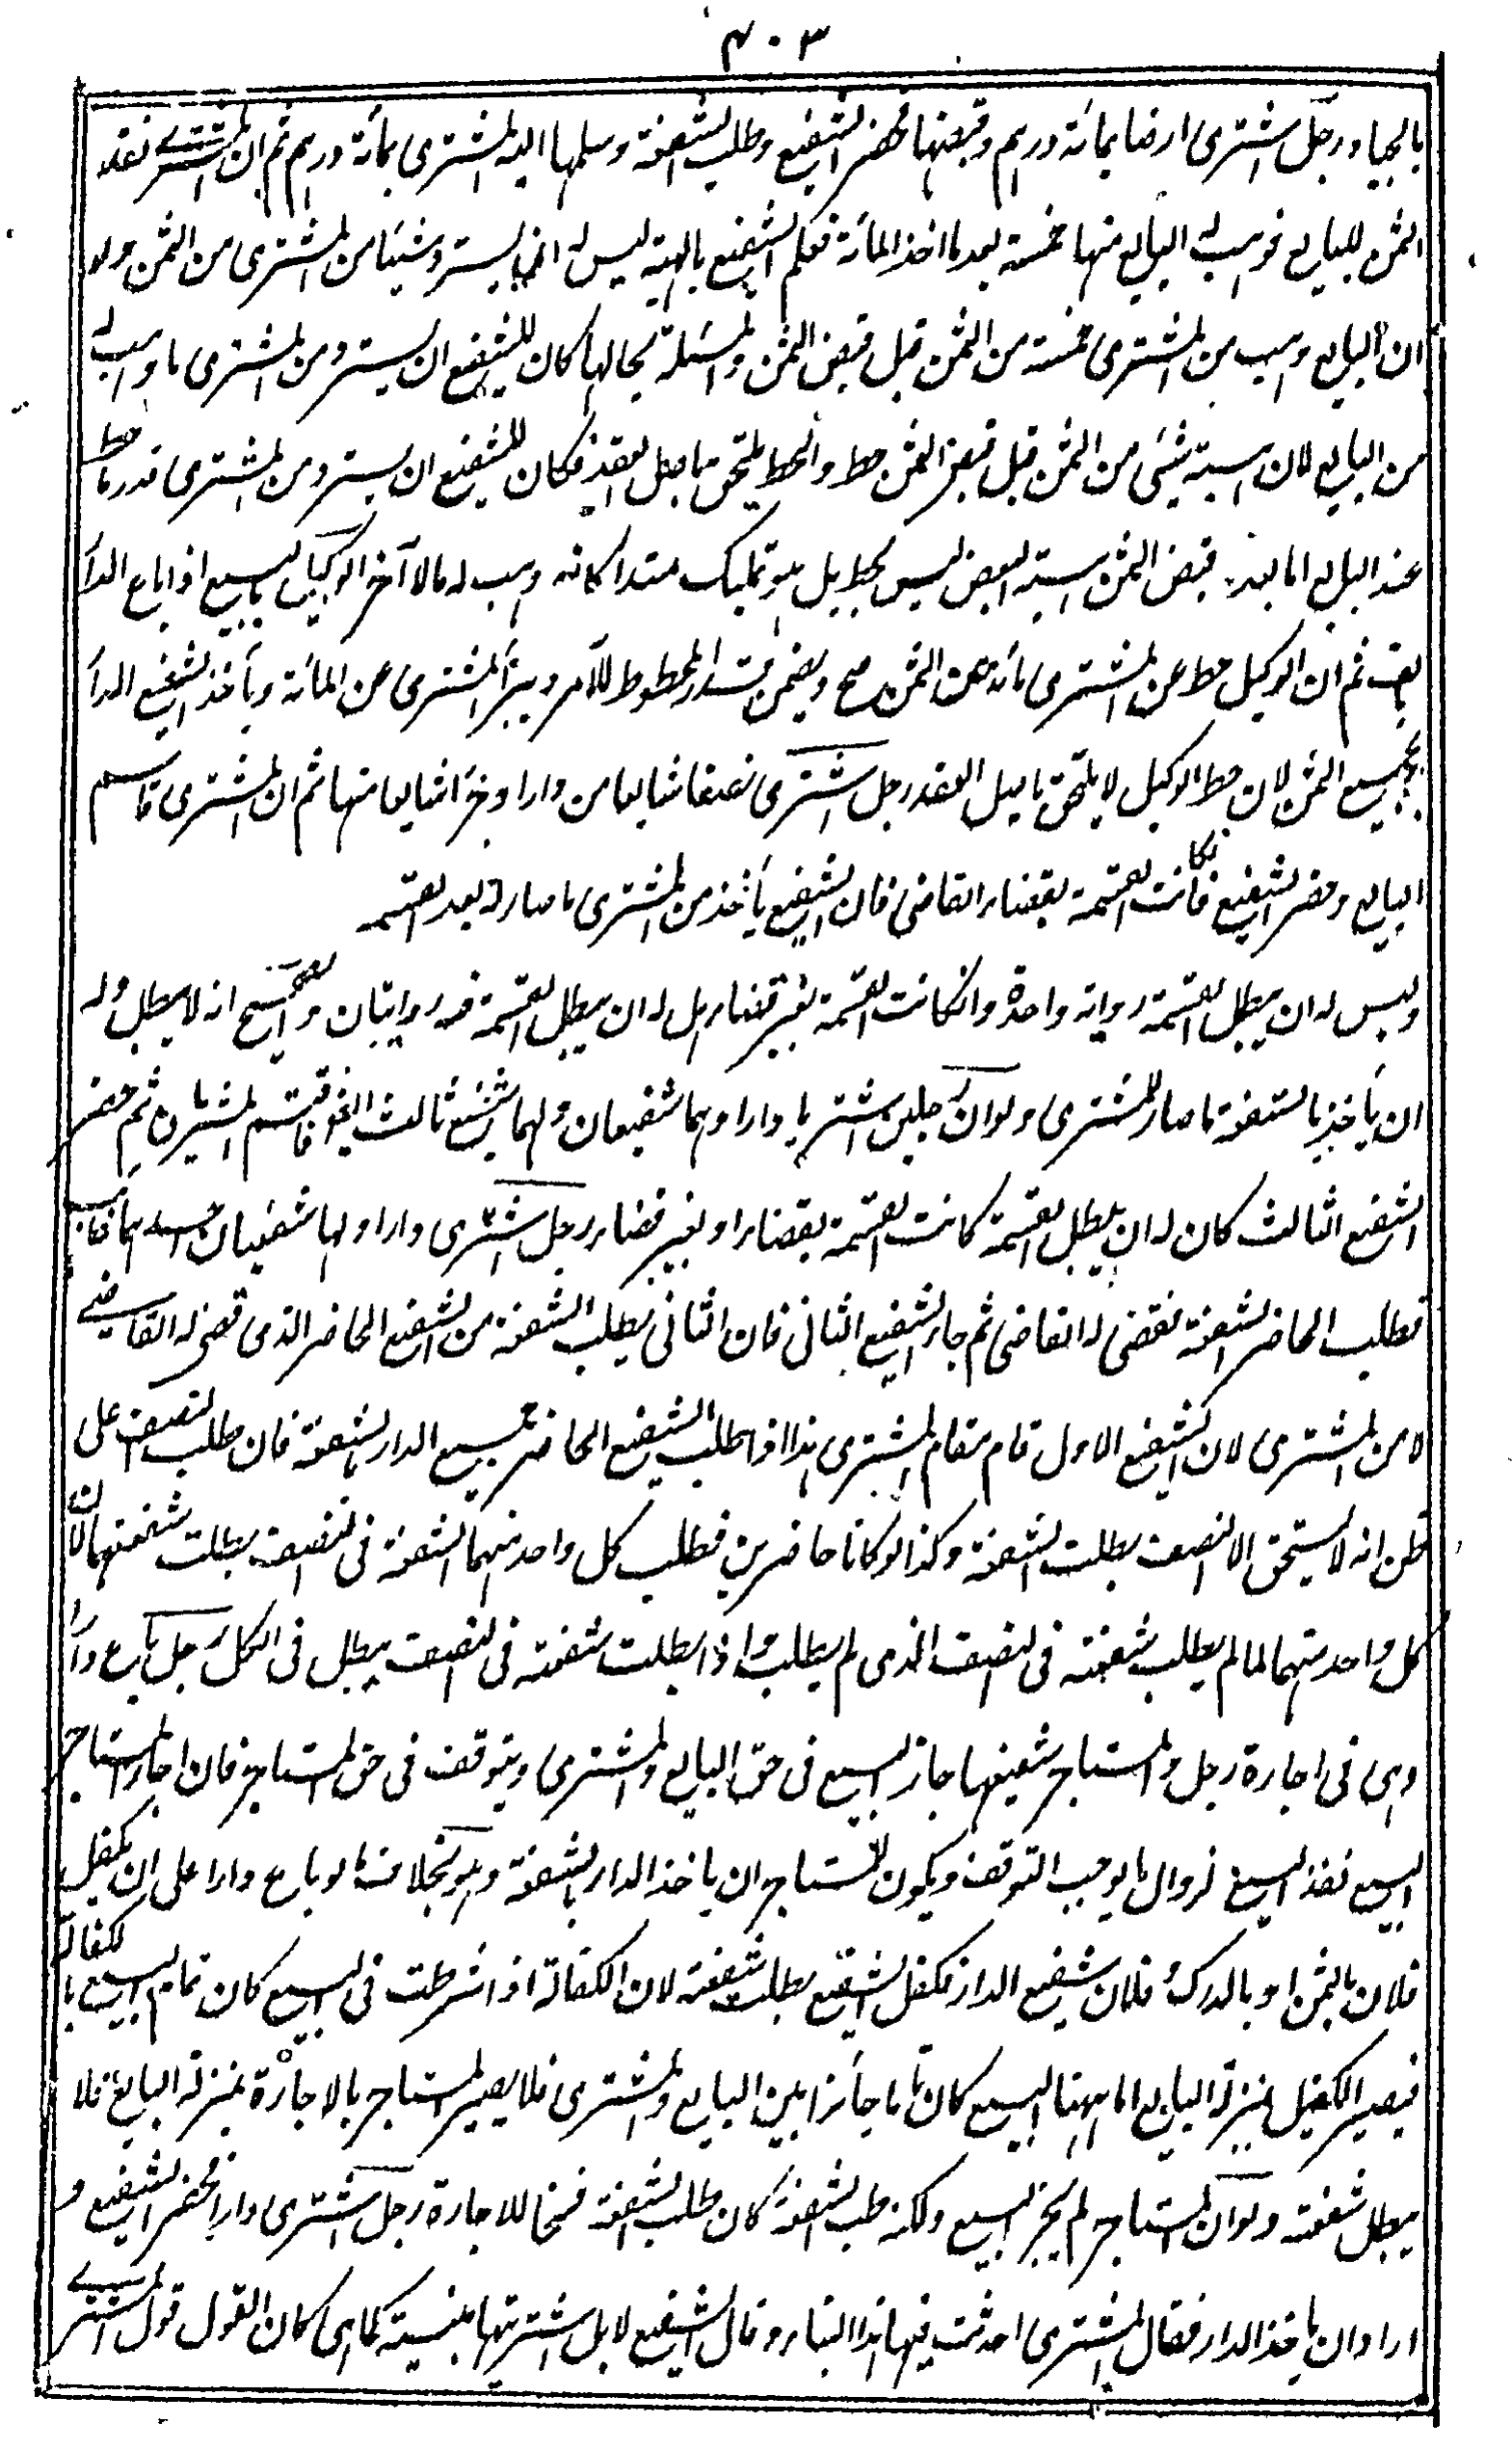 ٤٠٣
بالجياد رجل اشترى ارضا بمائة درهم وقبضها فحضر الشفيع وطلب الشفعة وسلمها اليه المشترى بمائة درهم ثم ان المشترى نقد
الثمن للبايع فوهب له البايع منها خمسة بعد ما اخذ المائة فعلم الشفيع بالهبة ليس له ان يسترد شيئا من المشترى من الثمن ولو
ان البايع وهب من المشترى خمسة من الثمن قبل قبض الثمن والمسئلة بحالها كان للشفيع ان يسترد من المشترى ما وهب له
من البايع لان هبة شئ من الثمن قبل قبض الثمن حط والحط يلتحق باصل العقد فكان للشفيع ان يسترد من المشترى قدر ما حط
عند البايع اما بعد قبض الثمن هبة البعض ليس بحط بل هو تمليك مبتدا كانه وهب له مالا آخر الوكيل بالبيع اذا باع الدار
بالف ثم ان الوكيل حط عن المشترى مائة من الثمن صح ويضمن قدر المحطوط للآمر ويبرأ المشترى عن المائة ويأخذ الشفيع الدار
بجميع الثمن لان حط الوكيل لا يلتحق باصل العقد رجل اشترى نصفا شايعا من دار او جزأ شايعا منها ثم ان المشترى قاسم
البايع وحضر الشفيع فكانت القسمة بقضاء القاضى فان الشفيع يأخذ من المشترى ما صار له بعد القسمة
وليس له ان يبطل القسمة رواية واحدة وانكانت القسمة بغير قضاء هل له ان يبطل القسمة فيه روايتان والصحيح انه لا يبطل وله
ان يأخذ بالشفعة ما صار للمشترى ولو ان رجلين اشتريا دارا وهما شفيعان ولهما شفيع ثالث فاقتسم المشتريان ثم حضر
الشفيع الثالث كان له ان يبطل القسمة كانت القسمة بقضاء او بغير قضاء رجل اشترى دارا ولها شفيعان احدهما غايب
فطلب الحاضر الشفعة فقضى له القاضى ثم جاء الشفيع الثانى فان الثانى يطلب الشفعة من الشفيع الحاضر الذى قضى له القاضى
لا من المشترى لان الشفيع الاول قام مقام المشترى هذا اذا طلب الشفيع الحاضر جميع الدار بالشفعة فان طلب النصف على
ظن انه لا يستحق الا النصف بطلت الشفعة وكذا لو كانا حاضرين فطلب كل واحد منهما الشفعة فى النصف بطلت شفعتهما لان
كل واحد منهما لما لم يطلب شفعته فى النصف الذى لم يطلب واذا بطلت شفعته فى النصف يبطل فى الكل رجل باع دارا
وهى فى اجارة رجل والمستاجر شفيعها جاز البيع فى حق البايع والمشترى ويتوقف فى حق المستاجر فان اجاز المستاجر
البيع نفذ البيع لزوال ما يوجب التوقف ويكون للمستاجر ان ياخذ الدار بالشفعة وهو بخلاف ما لو باع دارا على ان يكفل
فلان بالثمن او بالدرك وفلان شفيع الدار فكفل الشفيع بطلت شفعته لان الكفالة اذا اشرطت فى البيع كان تمام البيع بالكفالة
فيصير الكفيل بمنزلة البايع اما ههنا البيع كان تاما جائزا بين البايع والمشترى فلا يصير المستاجر بالاجازة بمنزلة البايع فلا
يبطل شفعته ولو ان المستاجر لم يجز البيع ولكنه طلب الشفعة كان طلب الشفعة فسخا للاجارة رجل اشترى دارا فحضر الشفيع و
اراد ان ياخذ الدار فقال المشترى احدثت فيها هذا البناء وقال الشفيع لا بل اشتريتها مبنية كما هى كان القول قول المشترى